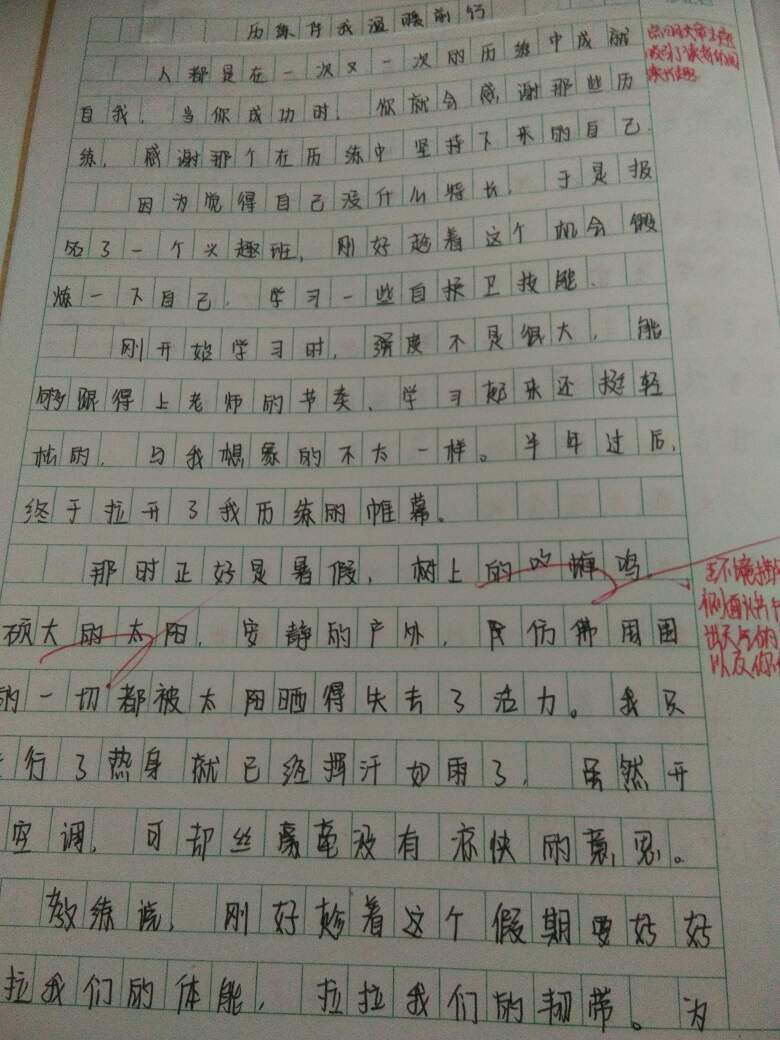 历练伴我温暖前行
人都是在一次又一次的历练中成就
自我，当你成功时，你就会感谢那些历
练，感谢那个在历练中坚持下来的自己。
因为觉得自己没什么特长，于是报
名了一个兴趣班，刚好趁着这个机会锻
炼一下自己，学习一些自换卫技能。
刚开始学习时，强度不是很大，能
够跟得上老师的节奏、学习起来还挺轻
松的，与我想象的不太一样。半年过后，
终于拉开了我历练的帷幕。
那时正好是暑假，树上的鸣
硕大的太阳，安静的户外，仿佛周围
的一切都被太阳晒得失去了活力。我只
行了热身就已经挥汗如雨了，虽然开
空调，可却丝毫没有凉快的意思。
教练说，刚好趁着这个假期要好好
拉我们的体能，拉拉我们的韧带。为
点门开
读者的阅
读兴趣
环境描
侧面
出天气的
以及你